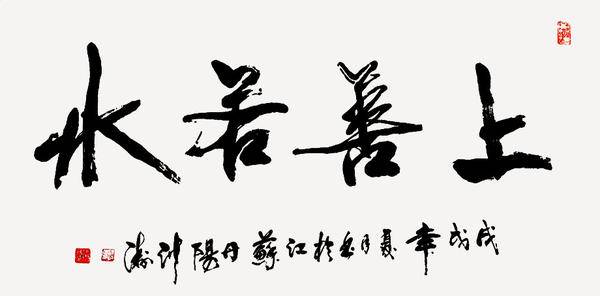 上善若水
戊戌年夏月书於江蘇丹陽